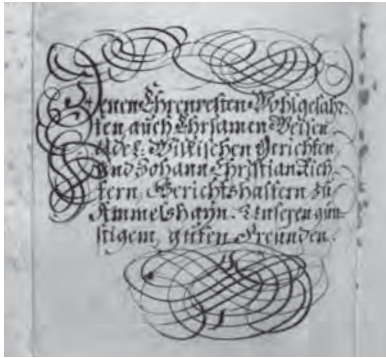 Denen Ehrenvesten Wohlgelahr-
ten auch Ehrsamen Weisen
Adel. Gerichten
und Johann Christian Rich-
tern, Gerichtshaltern zu
Himmelshayn. Unseren gün-
stigem, guten Freunden.